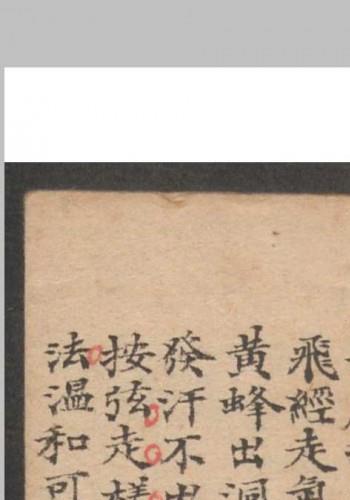 飛經走氣
黃蜂出洞
發汗不出
按弦走搓
法溫和可